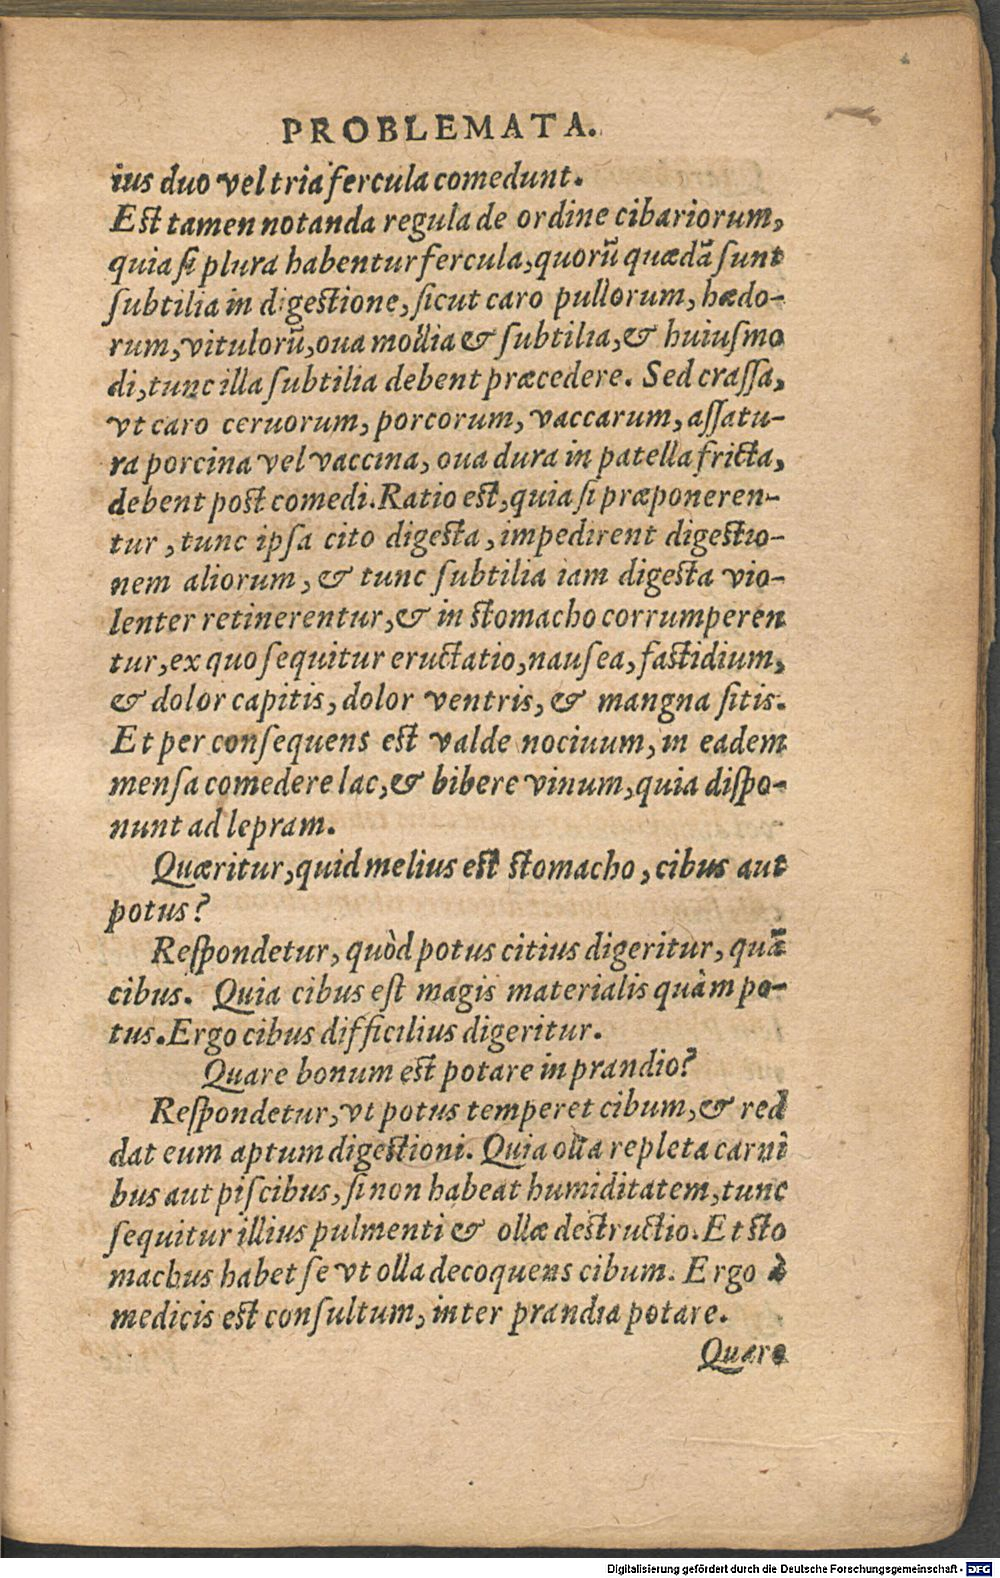 PROBLEMATA.
ius duo vel tria fercula comedunt.
Est tamen notanda regula de ordine cibariorum,
quia si plura habentur fercula, quorũ quædã sunt
subtilia in digestione, sicut caro pullorum, hædo-
rum, vitulorũ, oua mollia & subtilia, & huiusmo
di, tunc illa subtilia debent præcedere. Sed crassa,
vt caro ceruorum, porcorum, vaccarum, assatu-
ra porcina vel vaccina, oua dura in patella fricta,
debent post comedi. Ratio est, quia si præponeren-
tur, tunc ipsa cito digesta, impedirent digestio-
nem aliorum, & tunc subtilia iam digesta vio-
lenter retinerentur, & in stomacho corrumperen
tur, ex quo sequitur eructatio, nausea, fastidium,
& dolor capitis, dolor ventris, & mangna sitis.
Et per consequens est valde nociuum, in eadem
mensa comedere lac, & bibere vinum, quia dispo-
nunt ad lepram.
Quæritur, quid melius est stomacho, cibus aut
potus?
Respondetur, quòd potus citius digeritur, quã
cibus. Quia cibus est magis materialis quàm po-
tus. Ergo cibus difficilius digeritur.
Quare bonum est potare in prandio?
Respondetur, vt potus temperet cibum, & red
dat eum aptum digestioni. Quia olla repleta carni
bus aut piscibus, si non habeat humiditatem, tunc
sequitur illius pulmenti & ollæ destructio. Et sto
machus habet se vt olla decoquens cibum. Ergo à
medicis est consultum, inter prandia potare.
Quare
Digitalisierung gefördert durch die Deutsche Forschungsgemeinschaft - DFG